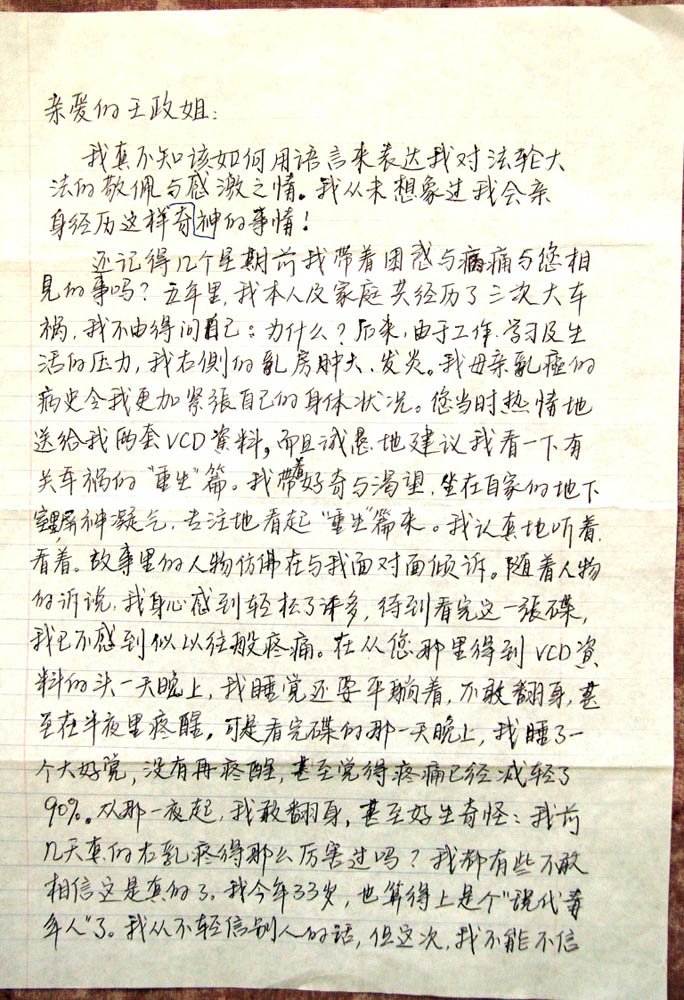 亲爱的王政姐：
我真不知该如何用语言来表达我对法轮大
法的敬佩与感激之情。我从未想象过我会亲
身经历这样奇神的事情！
还记得几个星期前我带着困惑与病痛与您相
见的事吗？五年里，我本人及家庭共经历了三次大车
祸，我不由得问自己：为什么？后来，由于工作、学习及生
活的压力，我右侧的乳房肿大、发炎。我母亲乳癌的
病史令我更加紧張自己的身体状况。您当时热情地
送给我两套VCD資料，而且诚恳地建议我看一下有
关车祸的“重生”篇。我带着好奇与渴望，坐在自家的地下
室里屏神凝气，专注地看起“重生”篇来。我认真地听着，
看着。故事里的人物仿佛在与我面对面倾诉。随着人物
的诉说，我身心感到轻松了许多，待到看完这一張碟，
我已不感到似以往般疼痛。在从您那里得到VCD資
料的头一天晚上，我睡觉还要平躺着，不敢翻身，甚
至在半夜里疼醒。可是看完碟的那一天晚上，我睡了一
个大好觉，没有再疼醒，甚至觉得疼痛已经减轻了
90%。从那一夜起，我敢翻身，甚至好生奇怪：我前
几天真的右乳疼得那么厉害过吗？我都有些不敢
相信这是真的了。我今年33岁，也算得上是个“现代青
年人”了。我从不轻信别人的话，但这次，我不能不信